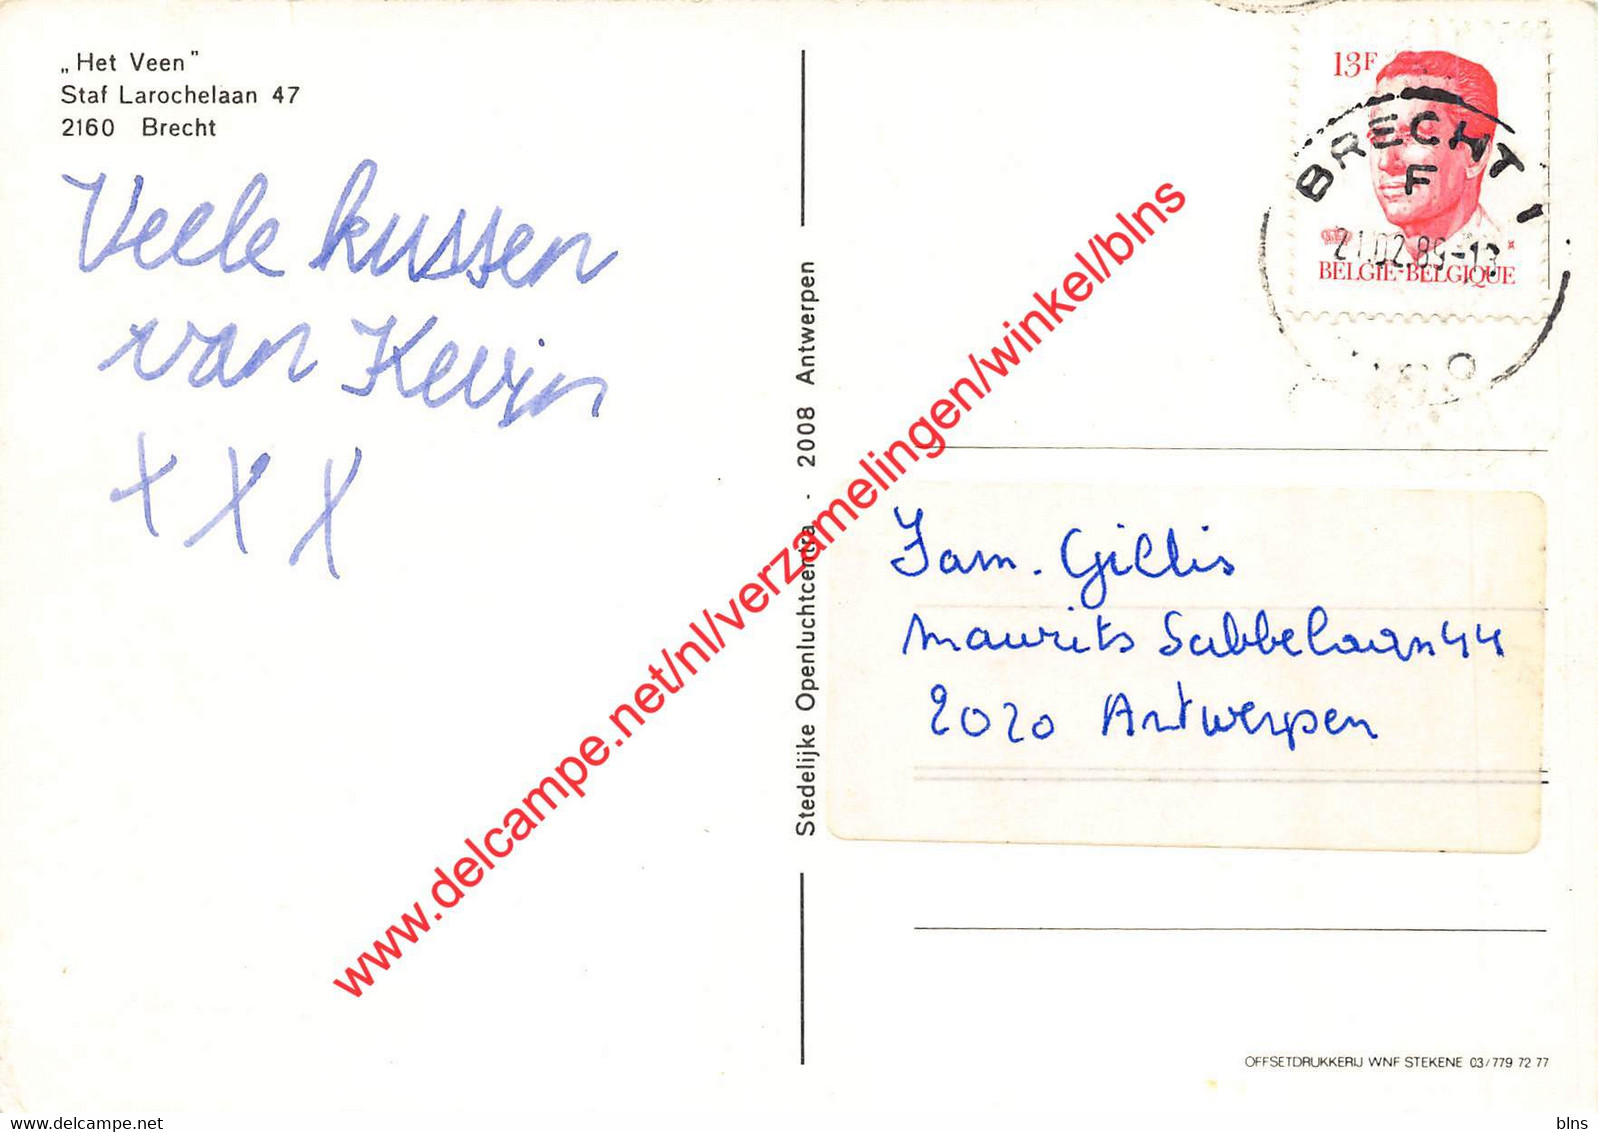 „Het Veen"
Staf Larochelaan 47
2160 Brecht
Veele kussen
van Kevin
x x x
Stedelijke Openluchtcentra - 2008 Antwerpen
13F
BELGIE-BELGIQUE
BRECHT 1
F
21.02.89-13
Fam. Gillis
Maurits Sabbelaan 44
2020 Antwerpen
OFFSETDRUKKERIJ WNF STEKENE 03/779 72 77
www.delcampe.net/nl/verzamelingen/winkel/blns
blns